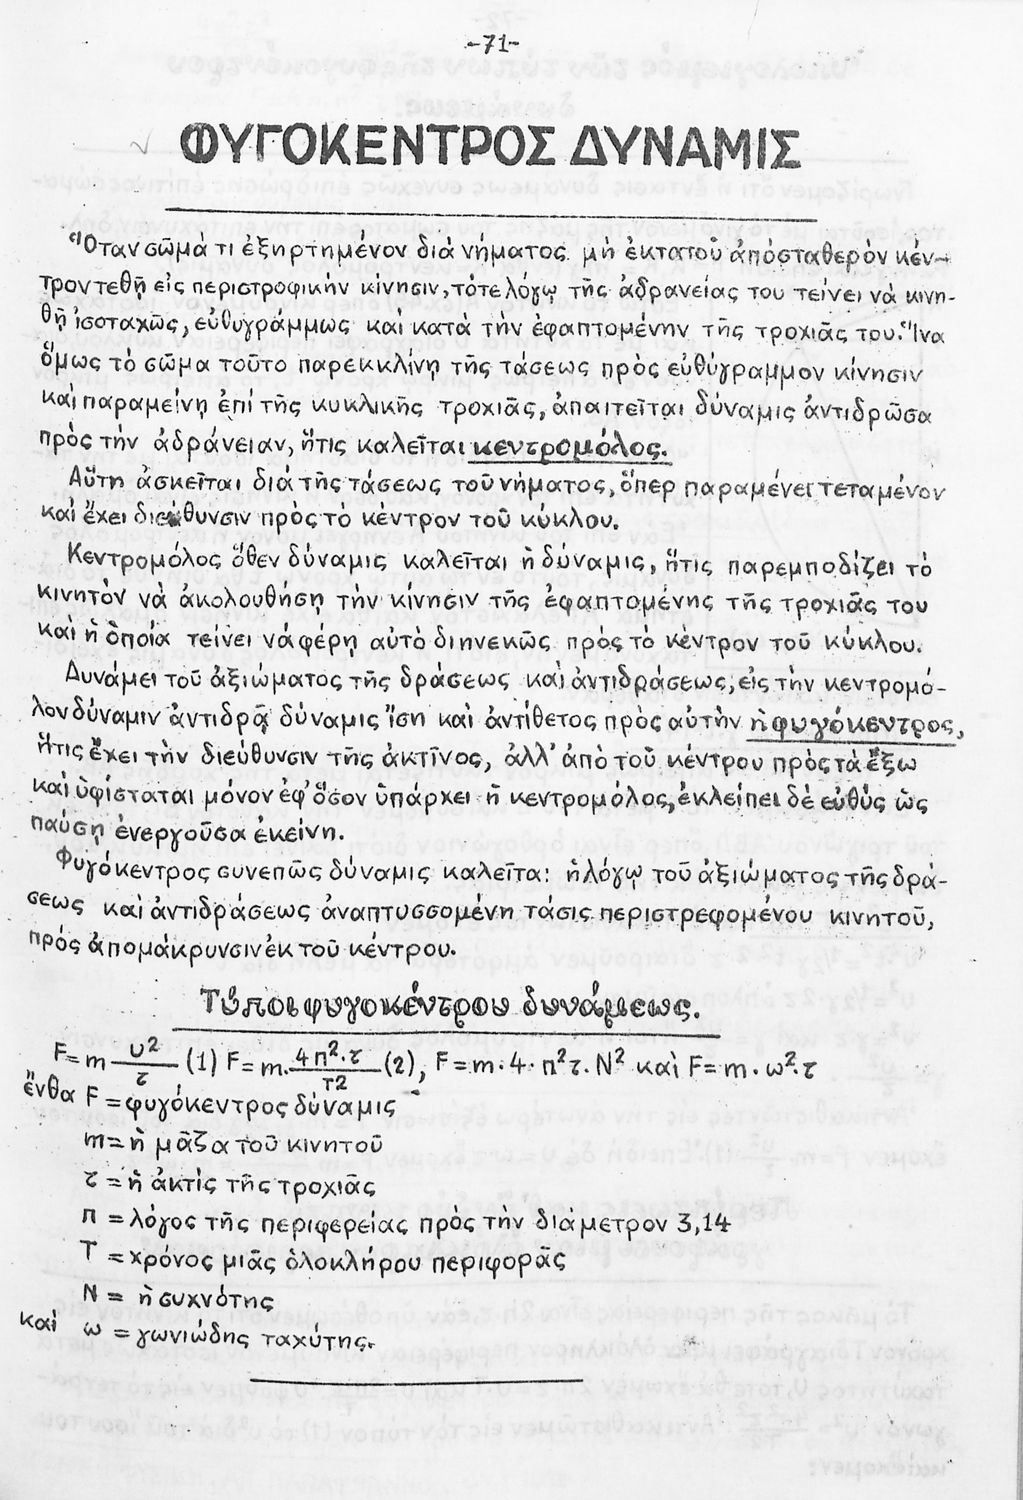 -71-
ΦΥΓΟΚΕΝΤΡΟΣ ΔΥΝΑΜΙΣ
Ὅταν σῶμά τι ἐξηρτημένον διά νήματος μή ἐκτατοῦ ἀπό σταθερόν κέν-
τρον τεθῇ εἰς περιστροφικήν κίνησιν, τότε λόγῳ τῆς ἀδρανείας του τείνει νὰ κινη-
θῇ ἰσοταχῶς, εὐθυγράμμως καί κατά τήν ἐφαπτομένην τῆς τροχιᾶς του. Ἵνα
ὅμως τό σῶμα τοῦτο παρεκκλίνῃ τῆς τάσεως πρός εὐθύγραμμον κίνησιν
καί παραμείνῃ ἐπί τῆς κυκλικῆς τροχιᾶς, ἀπαιτεῖται δύναμις ἀντιδρῶσα
πρός τήν ἀδράνειαν, ἥτις καλεῖται κεντρομόλος.
Αὕτη ἀσκεῖται διά τῆς τάσεως τοῦ νήματος, ὅπερ παραμένει τεταμένον
καί ἔχει διεύθυνσιν πρός τό κέντρον τοῦ κύκλου.
Κεντρομόλος ὅθεν δύναμις καλεῖται ἡ δύναμις, ἥτις παρεμποδίζει τό
κινητόν νά ἀκολουθήσῃ τήν κίνησιν τῆς ἐφαπτομένης τῆς τροχιᾶς του
καί ἡ ὁποία τείνει νά φέρῃ αὐτό διηνεκῶς πρός τό κέντρον τοῦ κύκλου.
Δυνάμει τοῦ ἀξιώματος τῆς δράσεως καί ἀντιδράσεως, εἰς τήν κεντρομό-
λον δύναμιν ἀντιδρᾷ δύναμις ἴση καί ἀντίθετος πρός αὐτήν ἡ φυγόκεντρος,
ἥτις ἔχει τήν διεύθυνσιν τῆς ἀκτῖνος, ἀλλ' ἀπό τοῦ κέντρου πρός τά ἔξω
καί ὑφίσταται μόνον ἐφ' ὅσον ὑπάρχει ἡ κεντρομόλος, ἐκλείπει δέ εὐθύς ὡς
παύσῃ ἐνεργοῦσα ἐκείνη.
Φυγόκεντρος συνεπῶς δύναμις καλεῖται ἡ λόγῳ τοῦ ἀξιώματος τῆς δρά-
σεως καί ἀντιδράσεως ἀναπτυσσομένη τάσις περιστρεφομένου κινητοῦ,
πρός ἀπομάκρυνσιν ἐκ τοῦ κέντρου.
Τύποι φυγοκέντρου δυνάμεως.
F=m υ²/τ (1) F=m. 4π².τ/T2 (2), F=m.4.π²τ.Ν² καί F=m.ω².τ
ἔνθα F = φυγόκεντρος δύναμις
m = ἡ μᾶζα τοῦ κινητοῦ
τ = ἡ ἀκτίς τῆς τροχιᾶς
π = λόγος τῆς περιφερείας πρός τήν διάμετρον 3,14
Τ = χρόνος μιᾶς ὁλοκλήρου περιφορᾶς
Ν = ἡ συχνότης
καί ω = γωνιώδης ταχύτης.